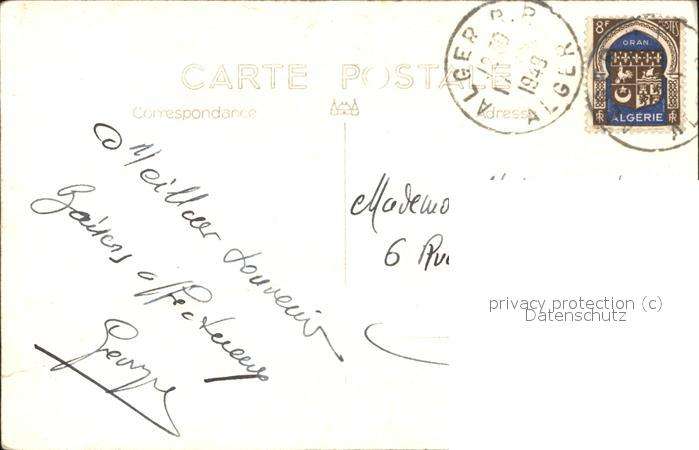 CARTE POSTALE
Correspondance
Adresse
ALGER R.P.
1949
ALGER
8F
ORAN
ALGÉRIE
Meilleur souvenir
Baisers affectueux
Georges
Mademo
6 Rue
privacy protection (c)
Datenschutz